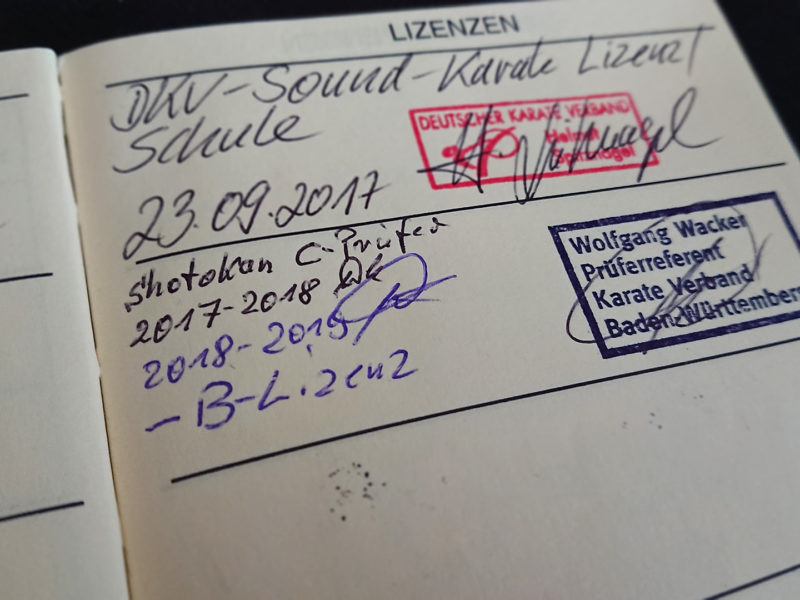 LIZENZEN
DKV-Sound-Karate Lizenz/
Schule
DEUTSCHER KARATE VERBAND
Helmut
Spitznagel
23.09.2017
Shotokan C-Prüfer
2017-2018
2018-2019
-B-Lizenz
Wolfgang Wacker
Prüferreferent
Karate Verband
Baden-Württemberg